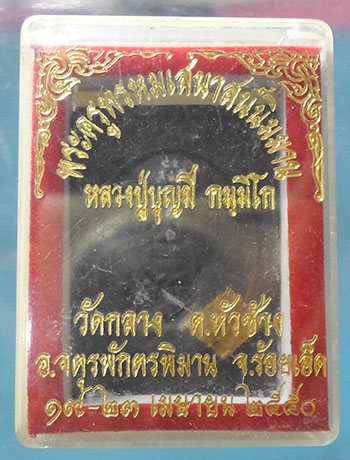 พระครูพรหมเสนาสนนิมมาน
หลวงปู่บุญมี กมฺมิโก
วัดกลาง ต.หัวช้าง
อ.จตุรพักตรพิมาน จ.ร้อยเอ็ด
๑๙-๒๓ เมษายน ๒๕๕๐